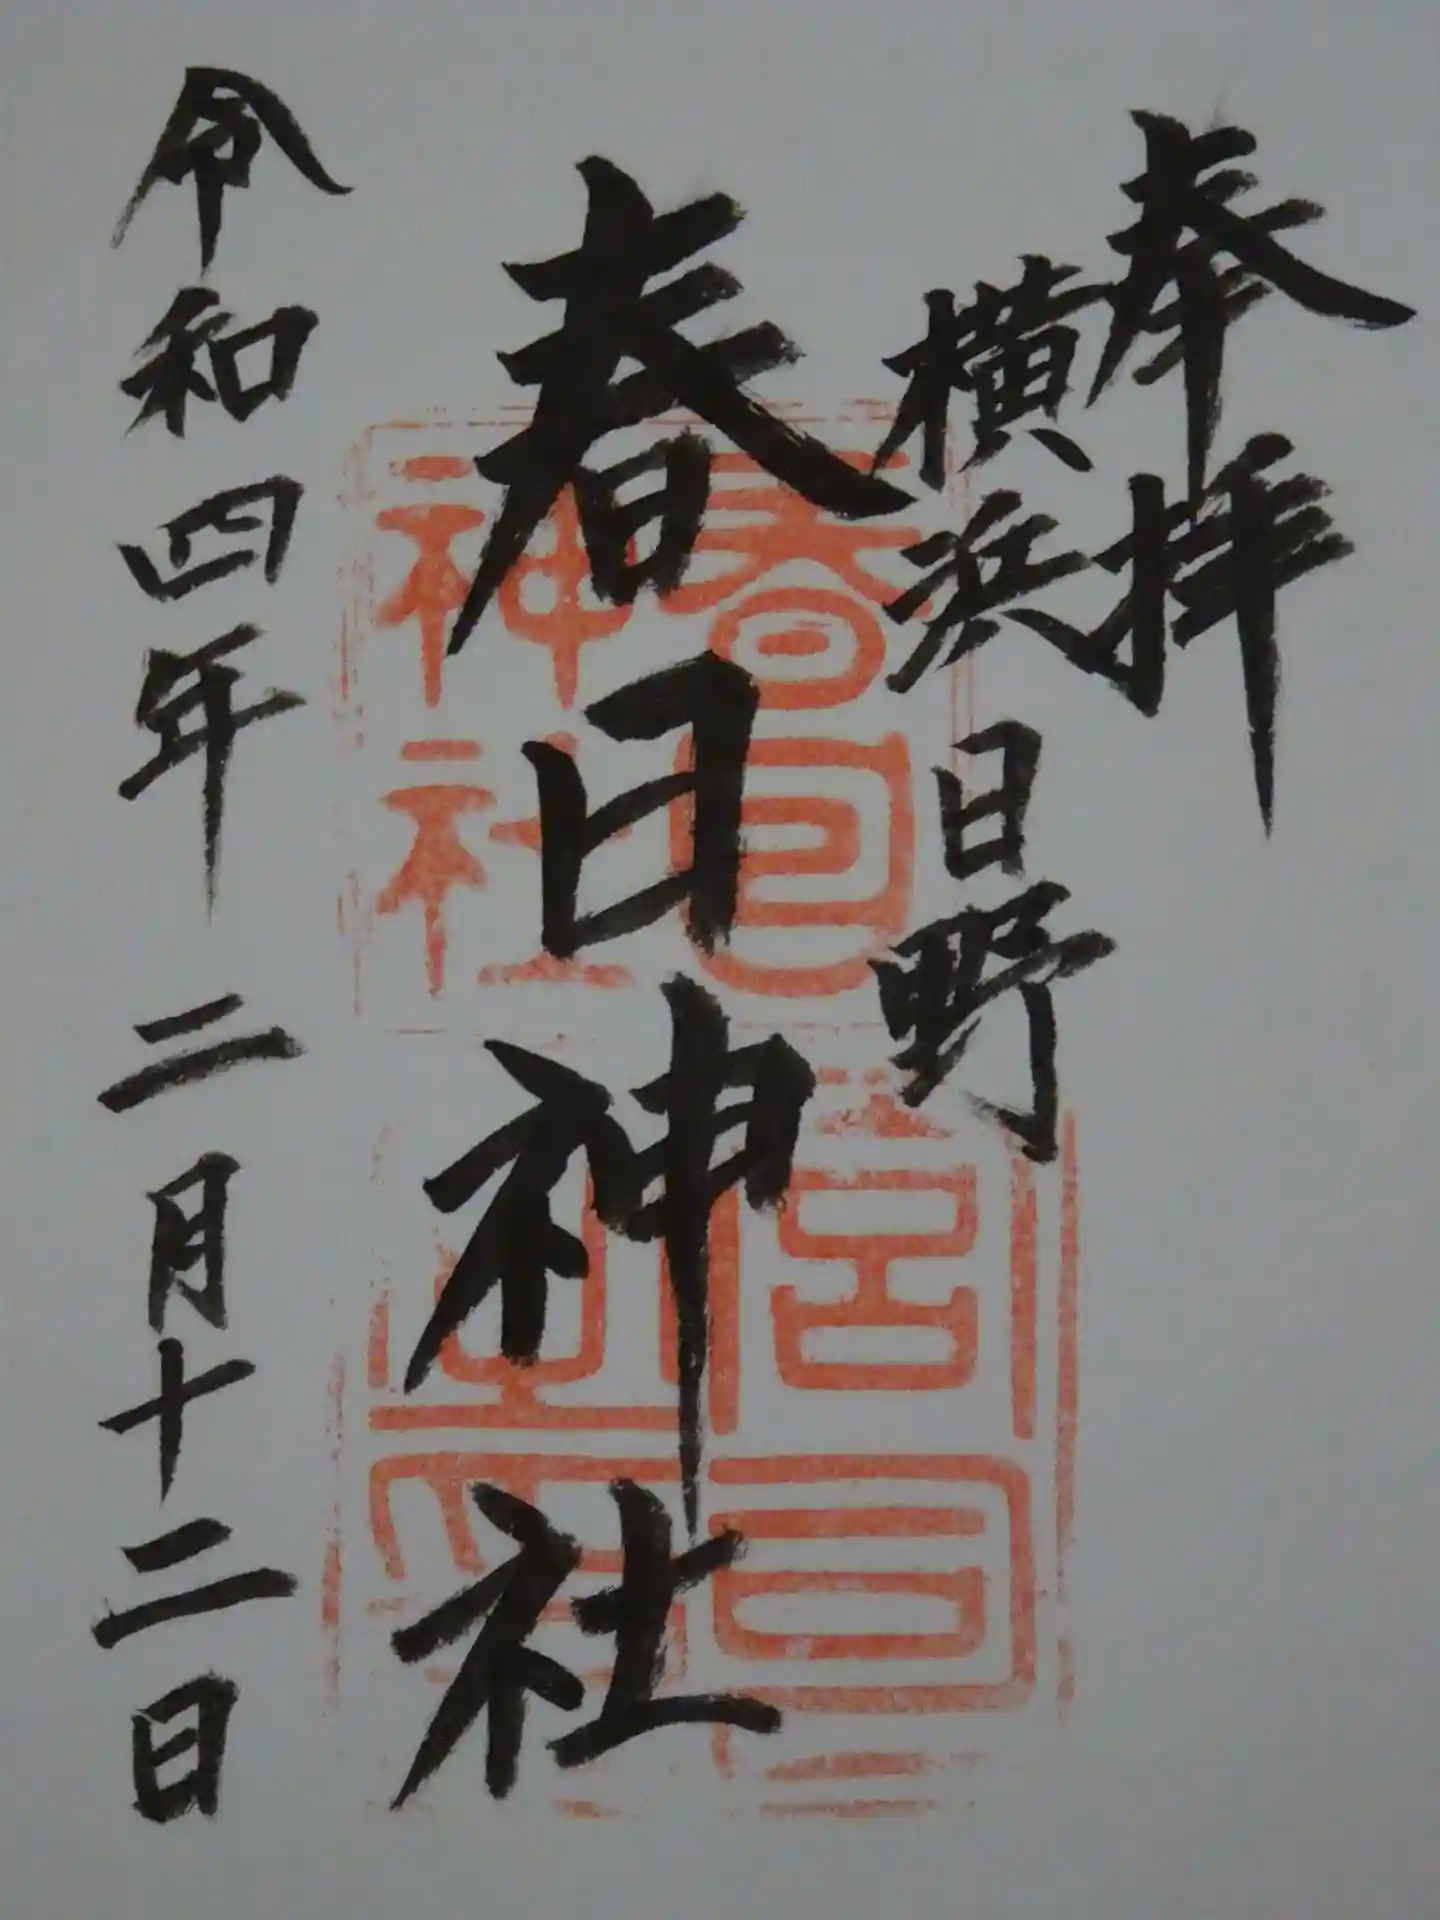 奉拝
横浜日野
春日神社
令和四年 二月十二日
春日
神社
宮司
之印